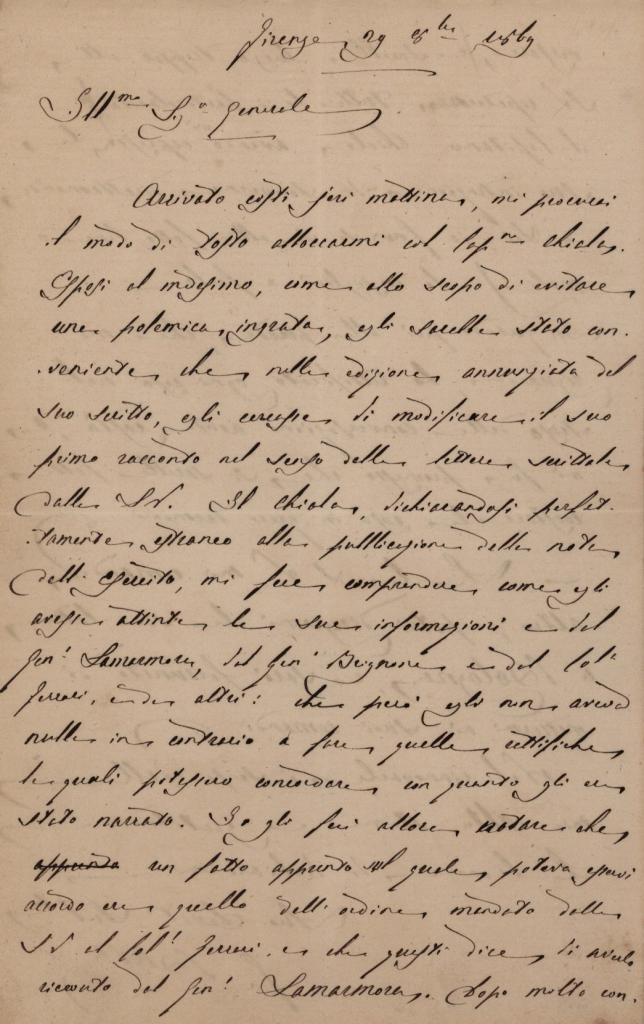 Firenze 29 8bre 1869
Illmo Sigr Generale
Arrivato costì jeri mattina, mi procurai
il modo di tosto abboccarmi col Capno Chiala.
Esposi al medesimo, come allo scopo di evitare
una polemica ingrata, egli sarebbe stato con-
-veniente che nella edizione annunziata del
suo scritto, egli cercasse di modificare il suo
primo racconto nel senso della lettera scrittale
dalla S.V. Il Chiala, dichiarandosi perfet-
-tamente estraneo alla pubblicazione della nota
dell'Esercito, mi fece comprendere come egli
avesse attinte le sue informazioni e dal
Genl Lamarmora, dal Genl Brignone e dal Coll
Ferrari, e da altri: che però egli non aveva
nulla in contrario a fare quelle rettifiche
le quali potessero concordare con quanto gli era
stato narrato. Io gli feci allora notare che
appunto un fatto appunto sul quale poteva esservi
accordo era quello dell'ordine mandato dalla
S.V. al Coll Ferrari, e che questi dice di averlo
ricevuto dal Genl Lamarmora. Dopo molto con-